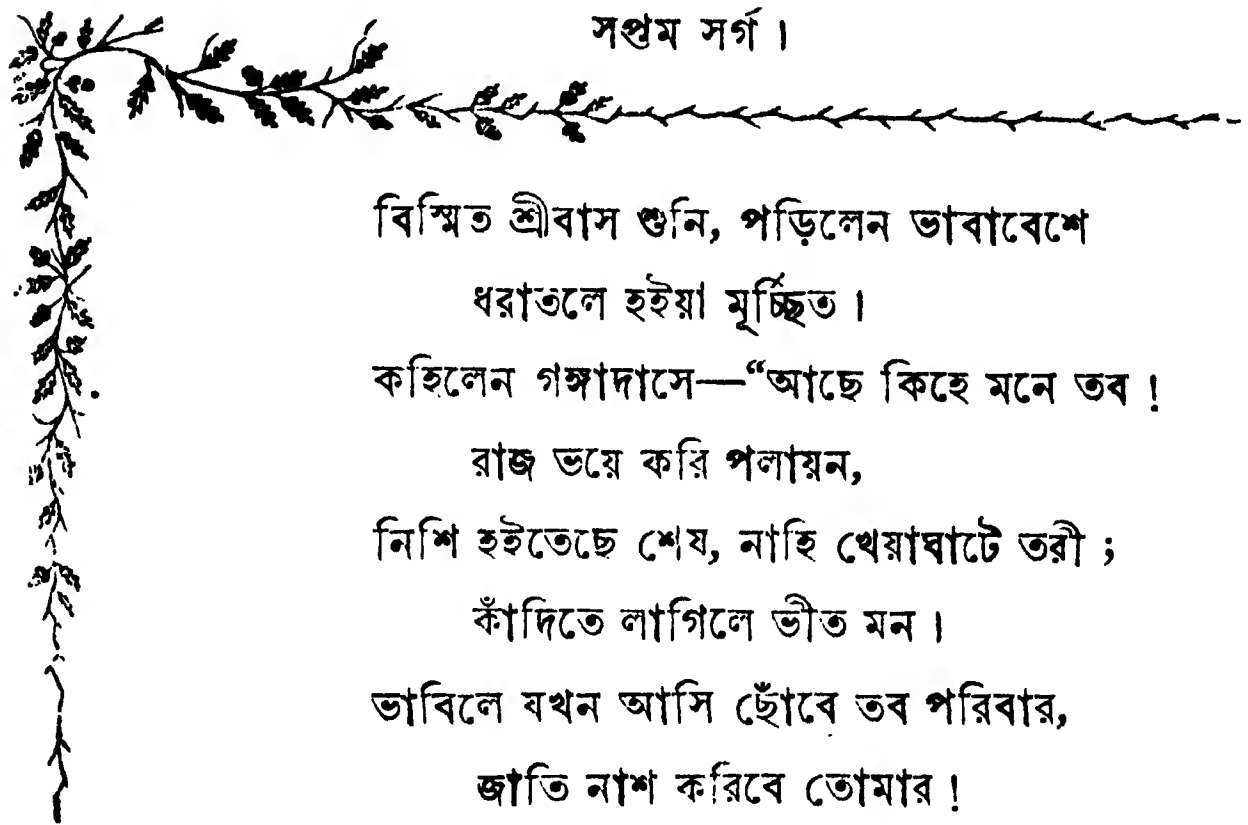 সপ্তম সর্গ।
বিস্মিত শ্রীবাস শুনি, পড়িলেন ভাবাবেশে
ধরাতলে হইয়া মূর্চ্ছিত।
কহিলেন গঙ্গাদাসে—“আছে কিহে মনে তব!
রাজ ভয়ে করি পলায়ন,
নিশি হইতেছে শেষ, নাহি খেয়াঘাটে তরী;
কাঁদিতে লাগিলে ভীত মন।
ভাবিলে যখন আসি ছোঁবে তব পরিবার,
জাতি নাশ করিবে তোমার!